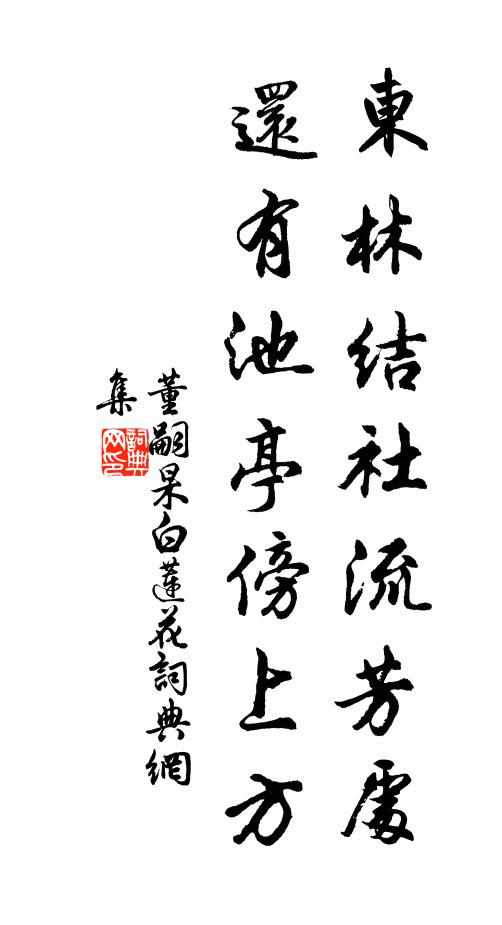 東林結社流芳處
還有池亭傍上方
董嗣杲白蓮花詞典網
集
詞典网印